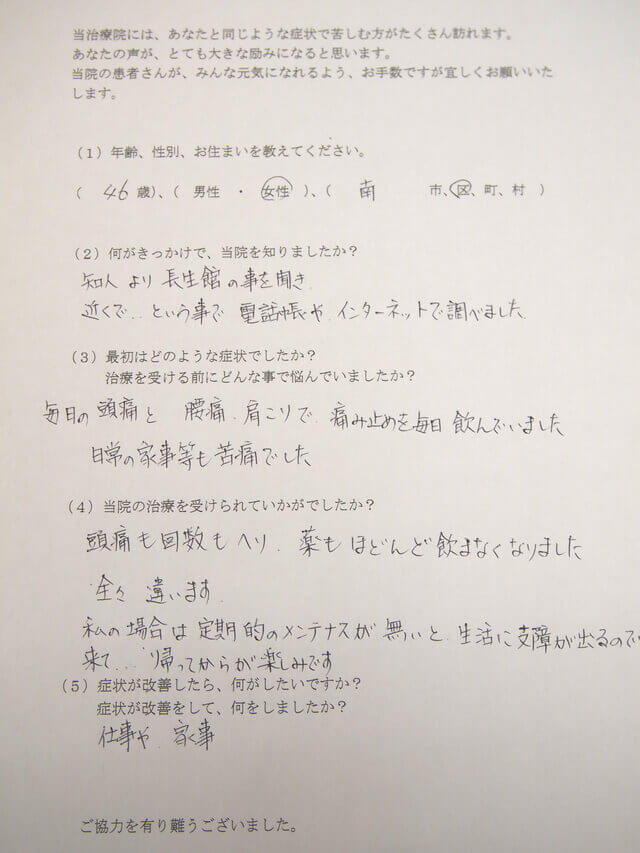 当治療院には、あなたと同じような症状で苦しむ方がたくさん訪れます。
あなたの声が、とても大きな励みになると思います。
当院の患者さんが、みんな元気になれるよう、お手数ですが宜しくお願いいた
します。
（1）年齢、性別、お住まいを教えてください。
（ 46 歳）、（ 男性 ・ 女性 ）、（ 南 市、区、町、村 ）
（2）何がきっかけで、当院を知りましたか？
知人 より 長生館 の事を聞き
近くで‥という事で 電話帳や インターネットで調べました
（3）最初はどのような症状でしたか？
治療を受ける前にどんな事で悩んでいましたか？
毎日の 頭痛と 腰痛、肩こりで、痛み止めを毎日 飲んでいました
日常の家事等も苦痛でした
（4）当院の治療を受けられていかがでしたか？
頭痛も回数もへり、薬も ほどんど飲まなくなりました
全々 違います
私の場合は定期的のメンテナスが 無いと、生活に支障が出るので
来て… 帰ってからが楽しみです
（5）症状が改善したら、何がしたいですか？
症状が改善をして、何をしましたか？
仕事や 家事
ご協力を有り難うございました。